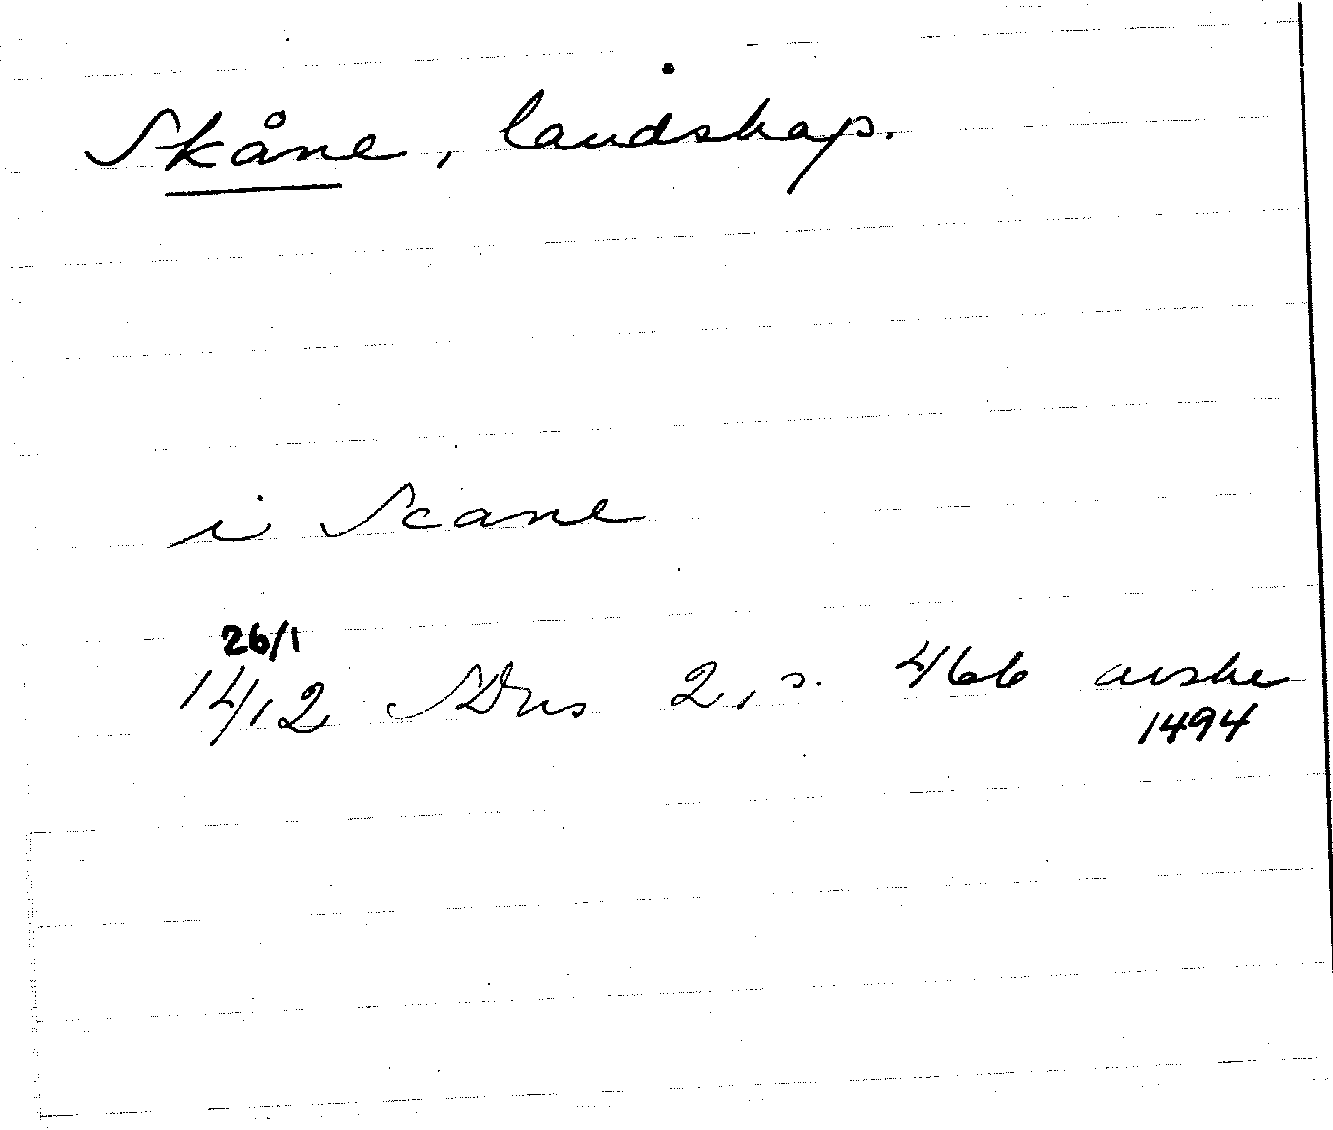 Skåne, landskap.
i Scane
26/1
1412 SDns 2, s. 466 avskr
1494